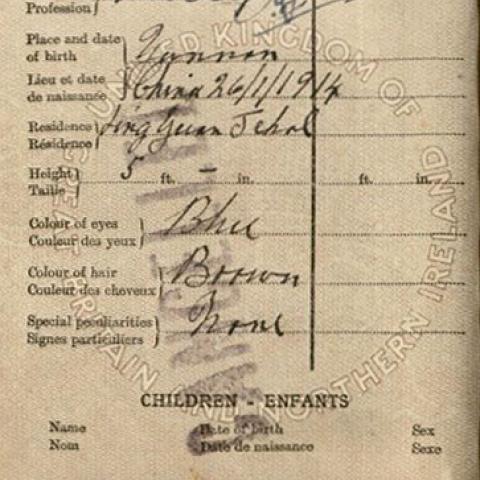 Profession
Place and date of birth Yunnan
Lieu et date de naissance China 26/1/1914
Residence Résidence Jehol
Height Taille 5 ft. – in. ft. in.
Colour of eyes Couleur des yeux Blue
Colour of hair Couleur des cheveux Brown
Special peculiarities Signes particuliers None
CHILDREN - ENFANTS
Name Date of birth Sex
Nom Date de naissance Sexe
UNITED KINGDOM OF GREAT BRITAIN AND NORTHERN IRELAND
CANCELLED